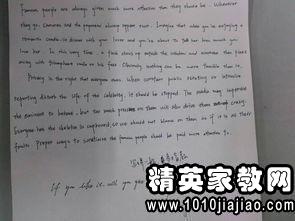 Famous people are always given much more attention than they should be. Whenever
they go, Cameras and the reporters always appear over. Imagine that when you're enjoying a
romantic candle-lit dinner with your lover and you're about to tell her how much you
love her. In this very time, a flash stirs up outside the window and someone the place
away with triumphant smile on his face. Obviously nothing can be more terrible than is.
Privacy is the right that everyone owns. When constant public rotating or intensive
reporting disturb the life of the celebrity, it should be stopped. The media may supervise
the dominant to behave, but too much pressure on them will also drive them crazy.
Everyone has the skeleton in cupboard, so we should not blame on them as if it is all their
faults. Proper ways to scrutinize the famous people should be paid more attention to.
If you like it, will you
精英家教网
www.1010jiajiao.com